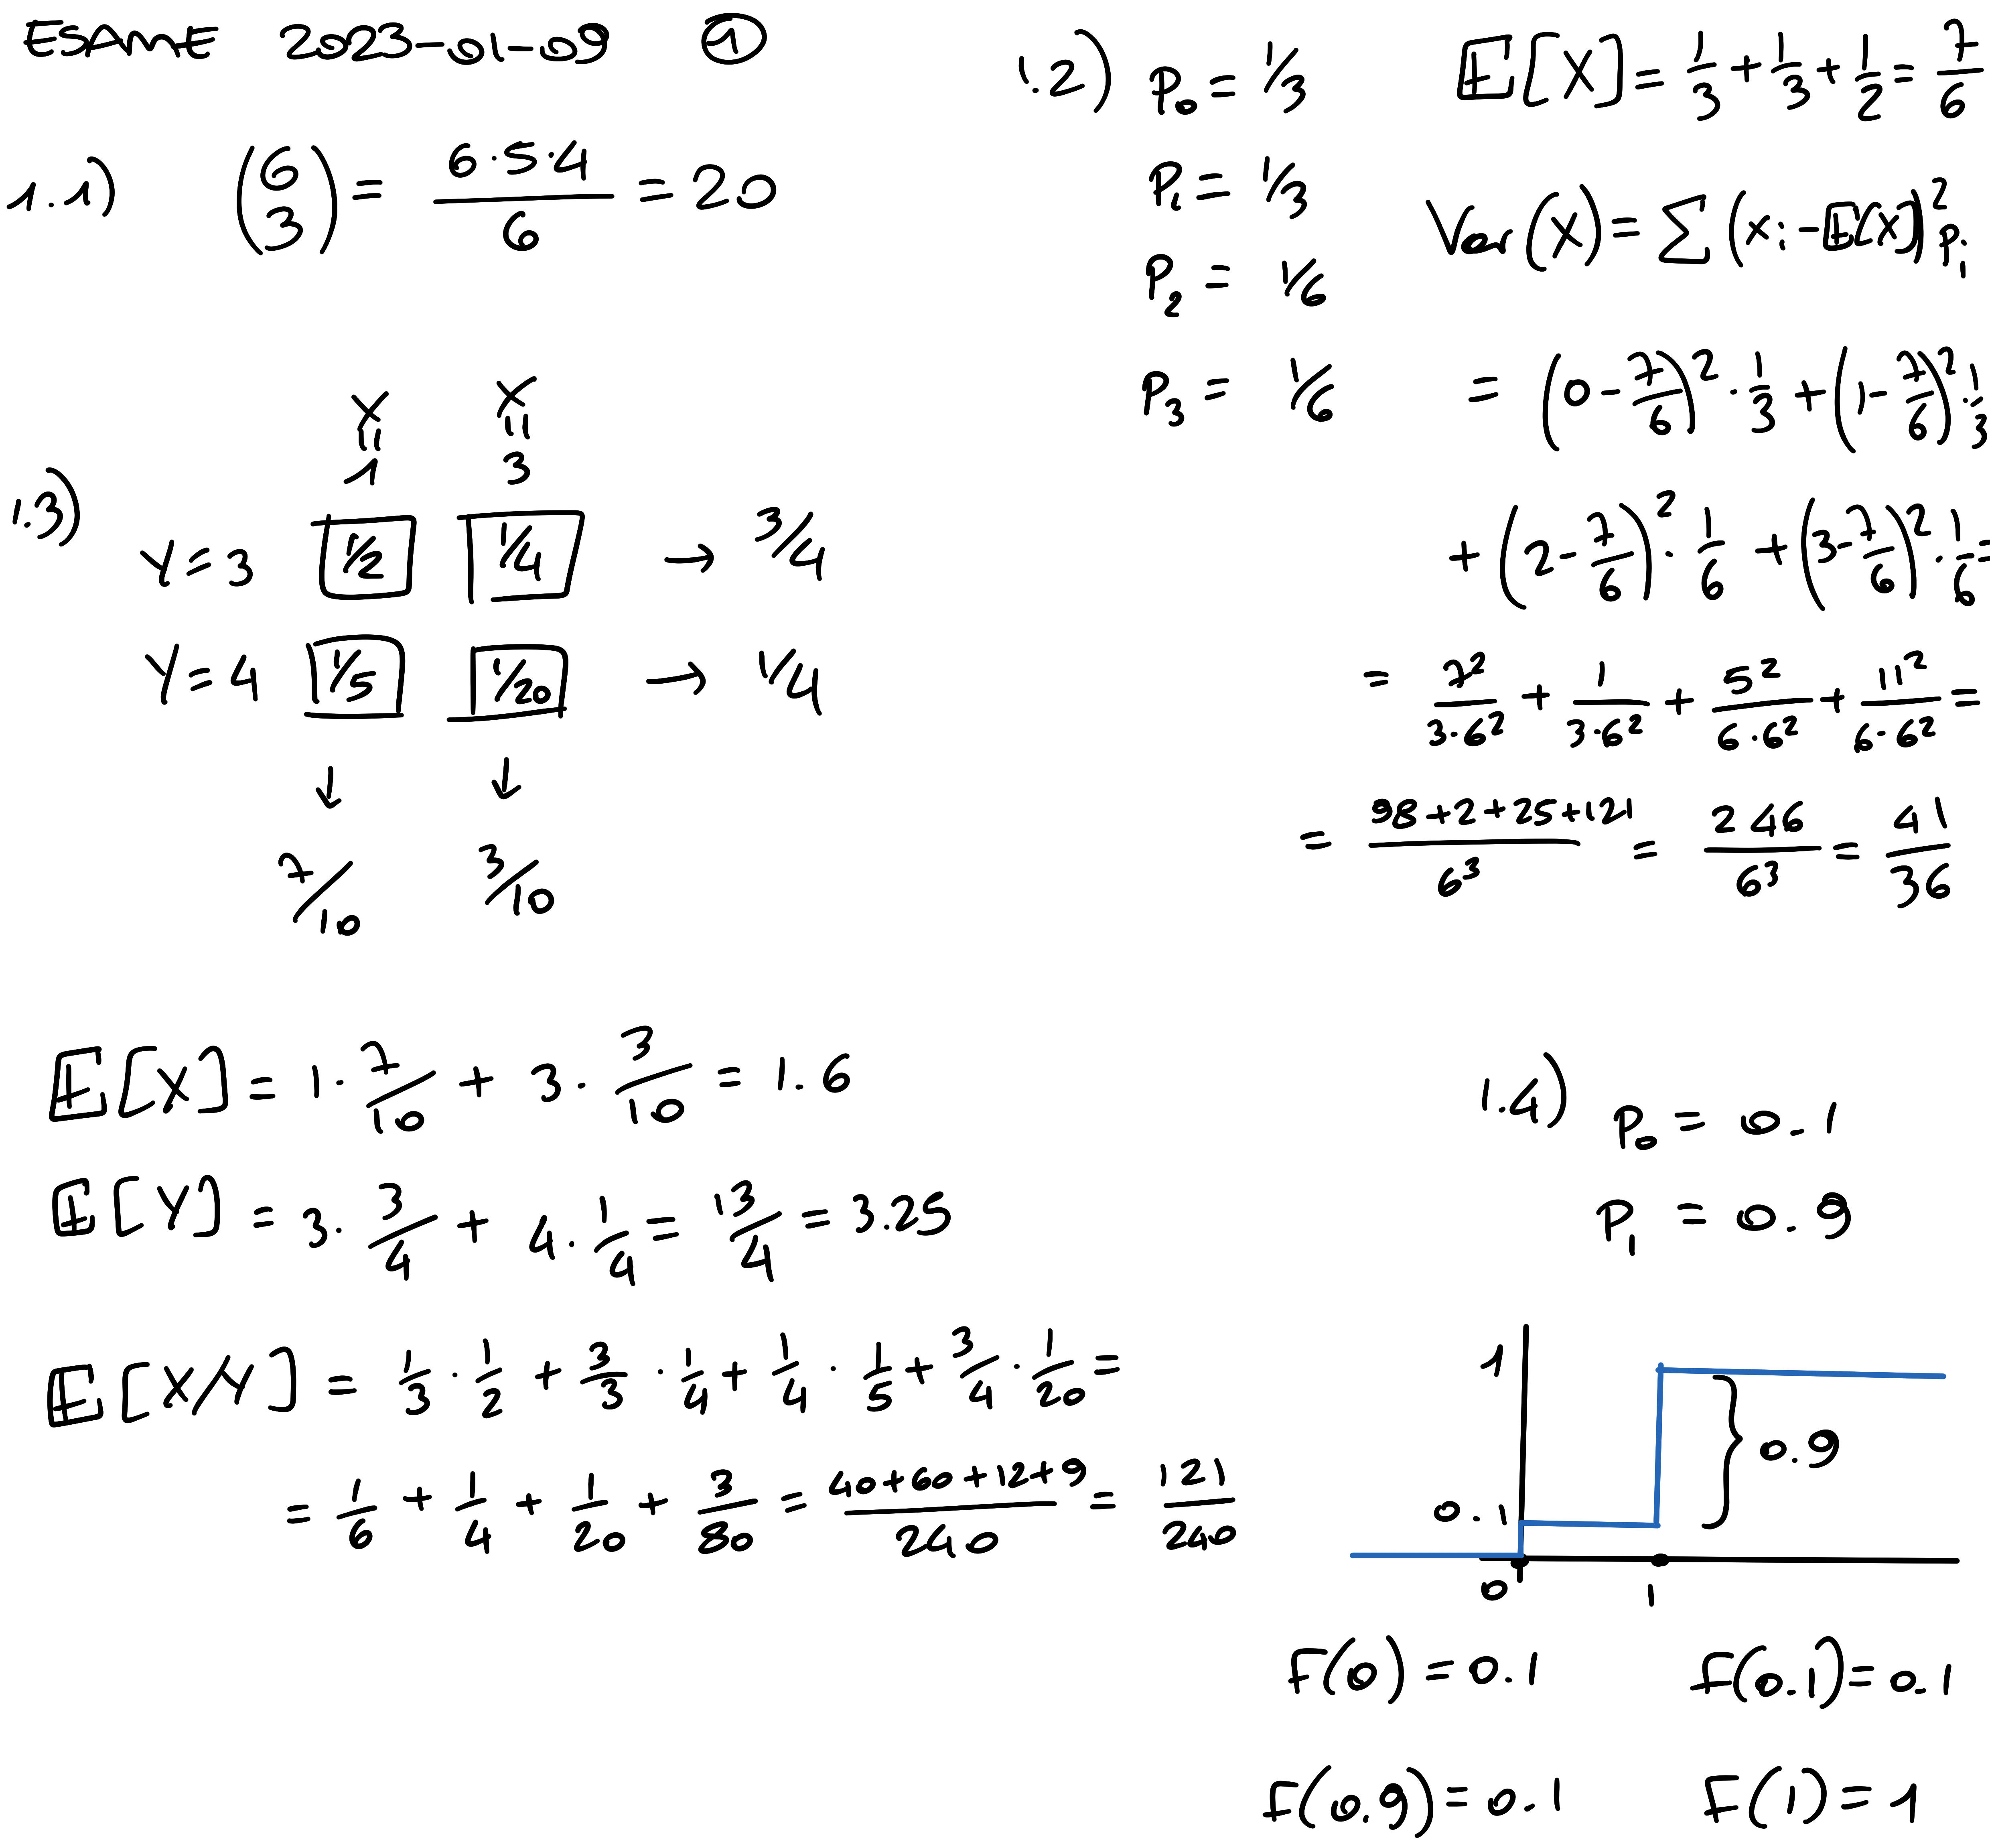 ESAME 2023-01-09 ①
1.1) (6 3) = 6·5·4/6 = 20
1.2) P₀ = 1/3 E[X] = 1/3 + 1/3 + 1/2 = 7/6
P₁ = 1/3 Var(X) = ∑ (xᵢ - E[X])² pᵢ
P₂ = 1/6
P₃ = 1/6 = (0 - 7/6)² · 1/3 + (1 - 7/6)² · 1/3
+ (2 - 7/6)² · 1/6 + (3 - 7/6)² · 1/6 =
= 7²/3·6² + 1/3·6² + 5²/6·6² + 11²/6·6² =
= 98+2+25+121/6³ = 246/6³ = 41/36
1.3)
X = 1 X = 3
Y = 3 1/2 1/4 → 3/4
Y = 4 1/5 1/20 → 1/4
↓ ↓
7/10 3/10
E[X] = 1 · 7/10 + 3 · 3/10 = 1.6
E[Y] = 3 · 3/4 + 4 · 1/4 = 13/4 = 3.25
E[X/Y] = 1/3 · 1/2 + 3/3 · 1/4 + 1/4 · 1/5 + 3/4 · 1/20 =
= 1/6 + 1/4 + 1/20 + 3/80 = 40+60+12+9/240 = 121/240
1.4) P₀ = 0.1
P₁ = 0.9
1
0.9
0.1
0 1
F(0) = 0.1 F(0.1) = 0.1
F(0.9) = 0.1 F(1) = 1